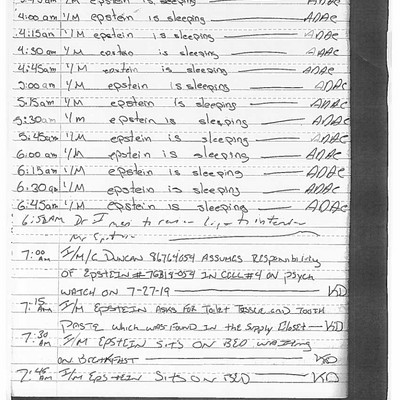 3:45am I/M epstein is sleeping
4:00am I/M epstein is sleeping — ADAC
4:15am I/M epstein is sleeping — ADAC
4:30am I/M epstein is sleeping — ADAC
4:45am I/M epstein is sleeping — ADAC
5:00am I/M epstein is sleeping — ADAC
5:15am I/M epstein is sleeping — ADAC
5:30am I/M epstein is sleeping — ADAC
5:45am I/M epstein is sleeping — ADAC
6:00am I/M epstein is sleeping — ADAC
6:15am I/M epstein is sleeping — ADAC
6:30am I/M epstein is sleeping — ADAC
6:45am I/M epstein is sleeping — ADAC
6:52AM Dr. I to
7:00 AM I/M/C DUNCAN 86764054 ASSUMES RESPONSIBILITY
OF EPSTEIN #76318-054 IN CELL #4 ON PSYCH
WATCH ON 7-27-19 — KD
7:15 AM I/M EPSTEIN ASKS FOR TOILET TISSUE AND TOOTH
PASTE which was FOUND IN the Supply Closet — KD
7:30 AM I/M EPSTEIN SITS ON BED WAITING
ON BREAKFAST — KD
7:45 AM I/M EPSTEIN SITS ON BED — KD